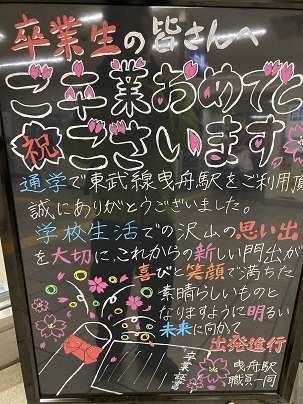 卒業生の皆さんへ
ご卒業おめでと
祝 ございます。
通学で東武線曳舟駅をご利用頂
誠にありがとうございました。
学校生活での沢山の思い出
を大切に、これからの新しい門出が
喜びと笑顔で満ちた
素晴らしいものと
なりますように明るい
未来に向かって
出発進行
卒業証書
曳舟駅
職員一同